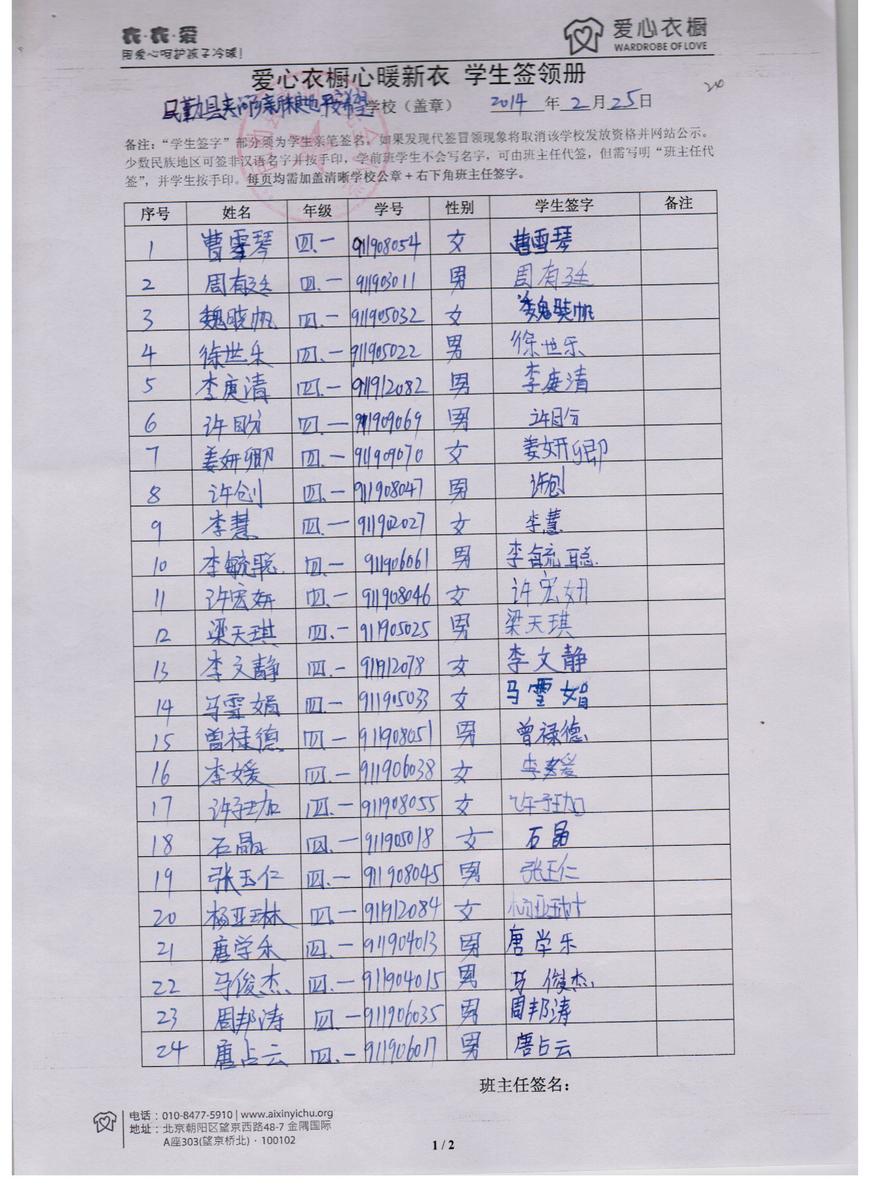 衣·衣·爱
用爱心呵护孩子冷暖!
爱心衣橱
WARDROBE OF LOVE
爱心衣橱心暖新衣 学生签领册
学校（盖章） 2014 年 2 月 25 日
备注：“学生签字”部分须为学生亲笔签名，如果发现代签冒领现象将取消该学校发放资格并网站公示。
少数民族地区可签非汉语名字并按手印，学前班学生不会写名字，可由班主任代签，但需写明“班主任代
签”，并学生按手印。每页均需加盖清晰学校公章+右下角班主任签字。
序号 姓名 年级 学号 性别 学生签字 备注
1 曹雪琴 四.一 911908054 女 曹雪琴
2 周有廷 四.一 911903011 男 周有廷
3 魏晓帆 四.一 911905032 女 魏晓帆
4 徐世乐 四.一 911905022 男 徐世乐
5 李庚清 四.一 911912082 男 李庚清
6 许 四.一 911909069 男 许
7 姜妍卿 四.一 911909070 女 姜妍卿
8 许创 四.一 911908047 男 许创
9 李慧 四.一 911902027 女 李慧
10 李毓聪 四.一 911906061 男 李毓聪
11 许宏妍 四.一 911908046 女 许宏妍
12 梁天琪 四.一 911905025 男 梁天琪
13 李文静 四.一 911912078 女 李文静
14 马雪娟 四.一 911905033 女 马雪娟
15 曾禄德 四.一 911908051 男 曾禄德
16 李媛 四.一 911906038 女 李媛
17 许珈 四.一 911908055 女 许珈
18 石晶 四.一 911905018 女 石晶
19 张玉仁 四.一 911908045 男 张玉仁
20 杨亚琳 四.一 911912084 女 杨亚琳
21 唐学乐 四.一 911904013 男 唐学乐
22 马俊杰 四.一 911904015 男 马俊杰
23 周邦涛 四.一 911906035 男 周邦涛
24 唐占云 四.一 911906017 男 唐占云
班主任签名：
电话：010-8477-5910 | www.aixinyichu.org
地址：北京朝阳区望京西路48-7 金隅国际
A座303(望京桥北)·100102
1 / 2